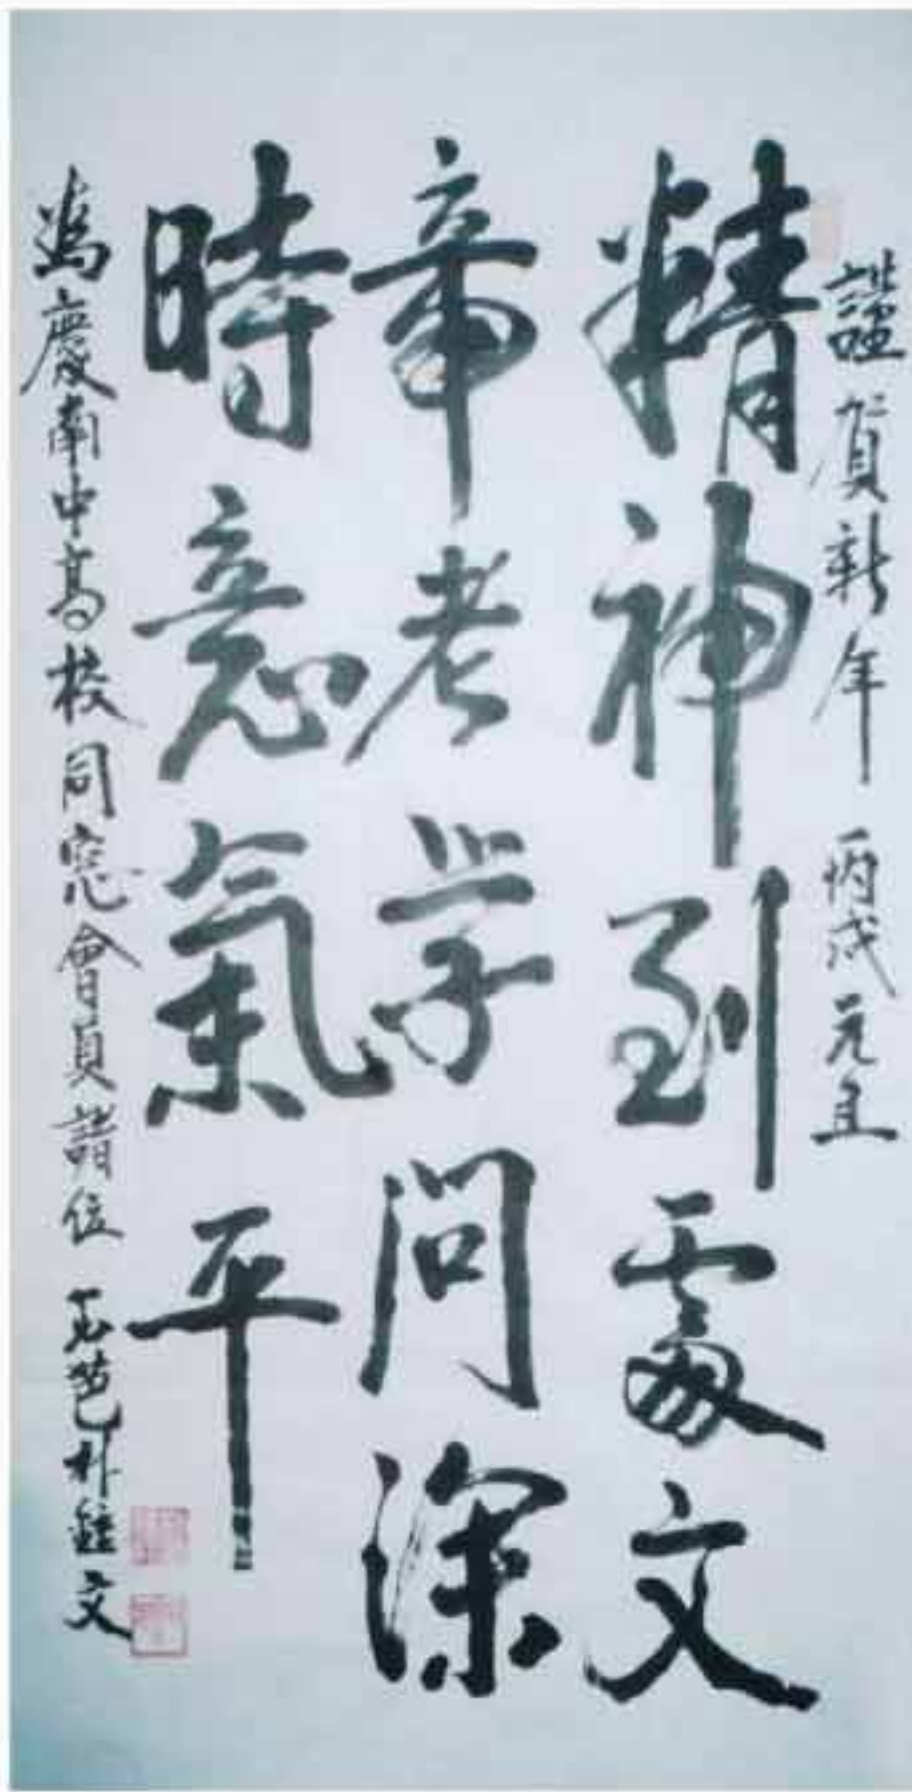 謹賀新年 丙戌元旦
精神到處文
章老学問深
時意氣平
為慶南中高校同窓會員諸位 朴鍾文